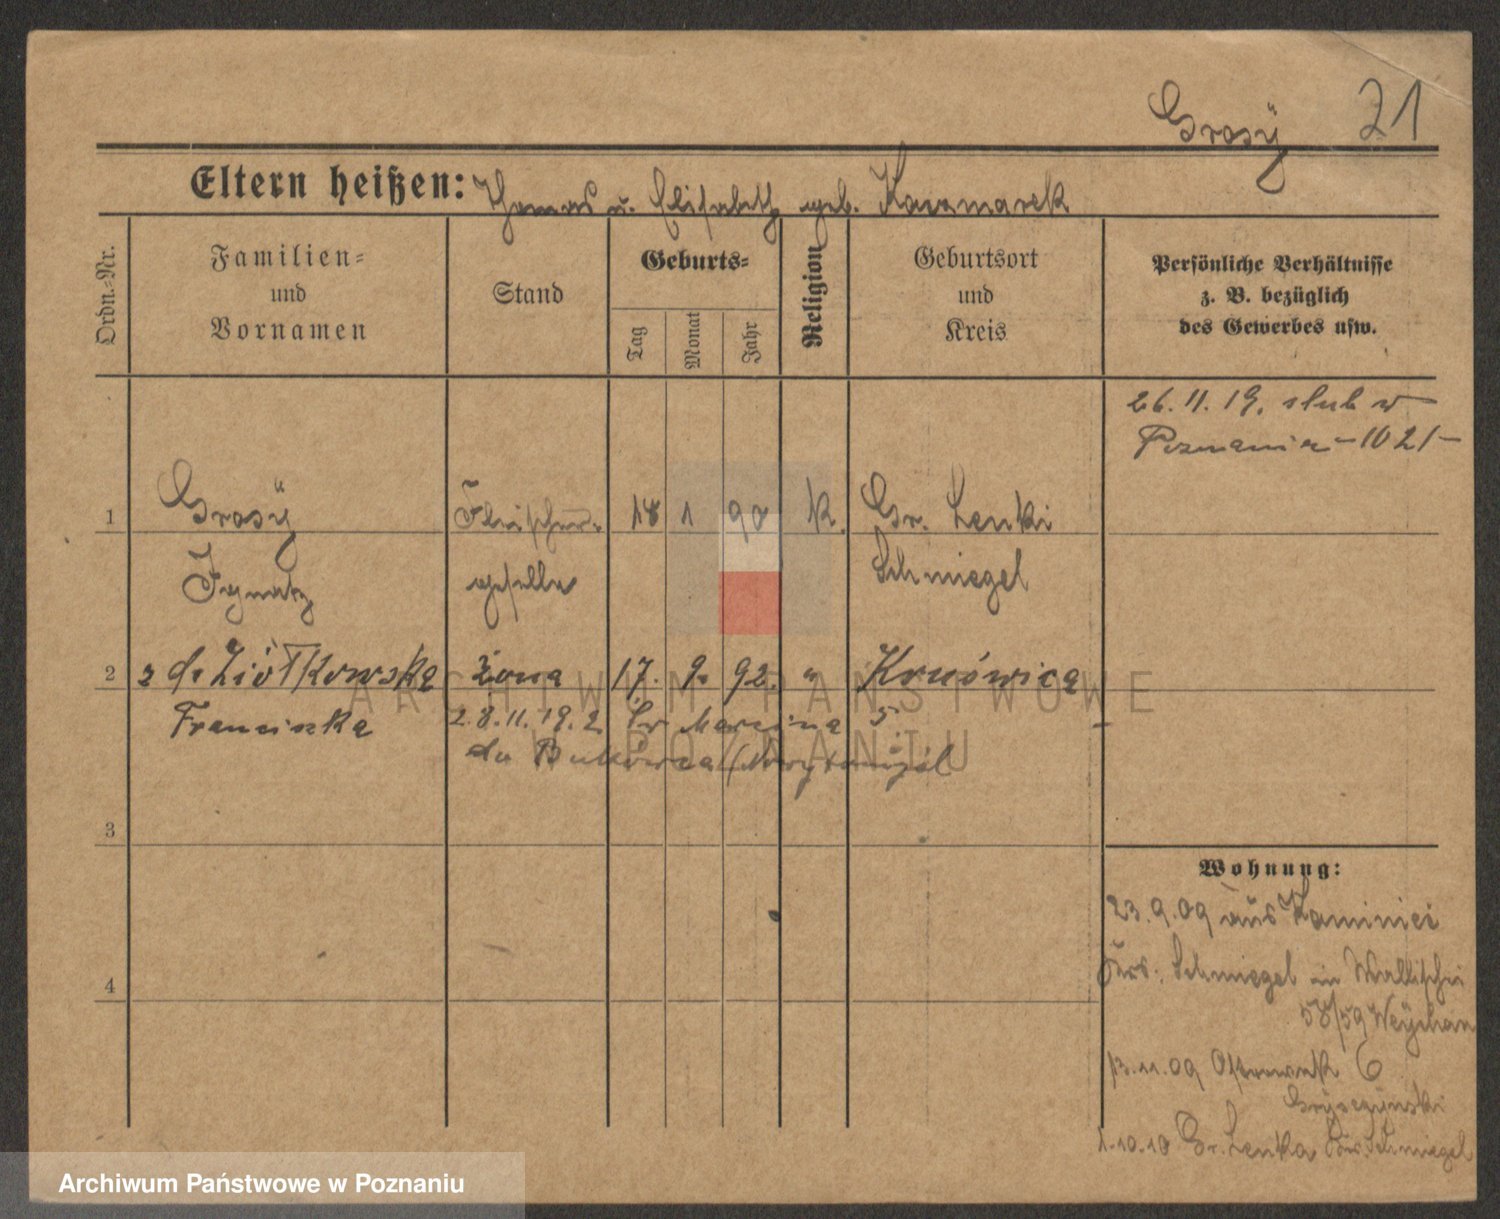 Grosÿ 21
Eltern heißen: Thomas u. Elisabeth geb. Kaczmarek
Ordn.-Nr.
Familien- und Vornamen
Stand
Geburts-
Tag
Monat
Jahr
Religion
Geburtsort und Kreis
Persönliche Verhältnisse
z. B. bezüglich
des Gewerbes usw.
26.11.19. slub w
Poznaniu - 1021 -
1 Grosÿ Fleischer- 18 1 90 K. Gr. Lenki
Ignatz geselle Schmiegel
2 z d. Ziółkowska żona 17. 9. 92. " Konówica
Franciszka 28.11.19. z Św Marcina 5.
do Bukówca (Nowytomyśl
3
4
Wohnung:
23.9.09 aus Kaminiec
Krs. Schmiegel in Wallischei
58/59 Weÿchan
13.11.09 Ostrowek 6
1.10.10 Gr. Lenka Krs. Schmiegel
ARCHIWUM PAŃSTWOWE
W POZNANIU
Archiwum Państwowe w Poznaniu